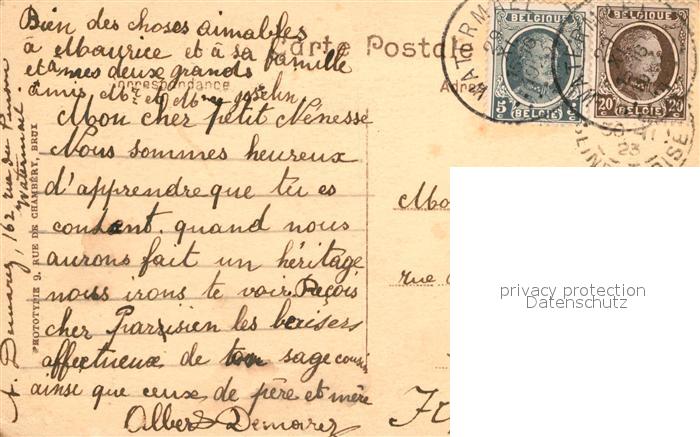 Bien des choses aimables
à Maurice et à sa famille
et à mes deux grands
amis Mr et Mme Josselin
Carte Postale
Correspondance
Adre
Mon cher petit Nénesse
Nous sommes heureux
d'apprendre que tu es
content. quand nous
aurons fait un héritage
nous irons te voir. Reçois
cher Parisien les baisers
affectueux de ton sage cousin
ainsi que ceux de père et mère
Albert Demarez
A. Demarez, 162 rue du Pinson
Watermael
PHOTOTYPIE 9, RUE DE CHAMBÉRY, BRUX
BELGIQUE
5c 5c
BELGIË
BELGIQUE
20c 20
BELGIË
WATERMAEL
23
rue
privacy protection
Datenschutz